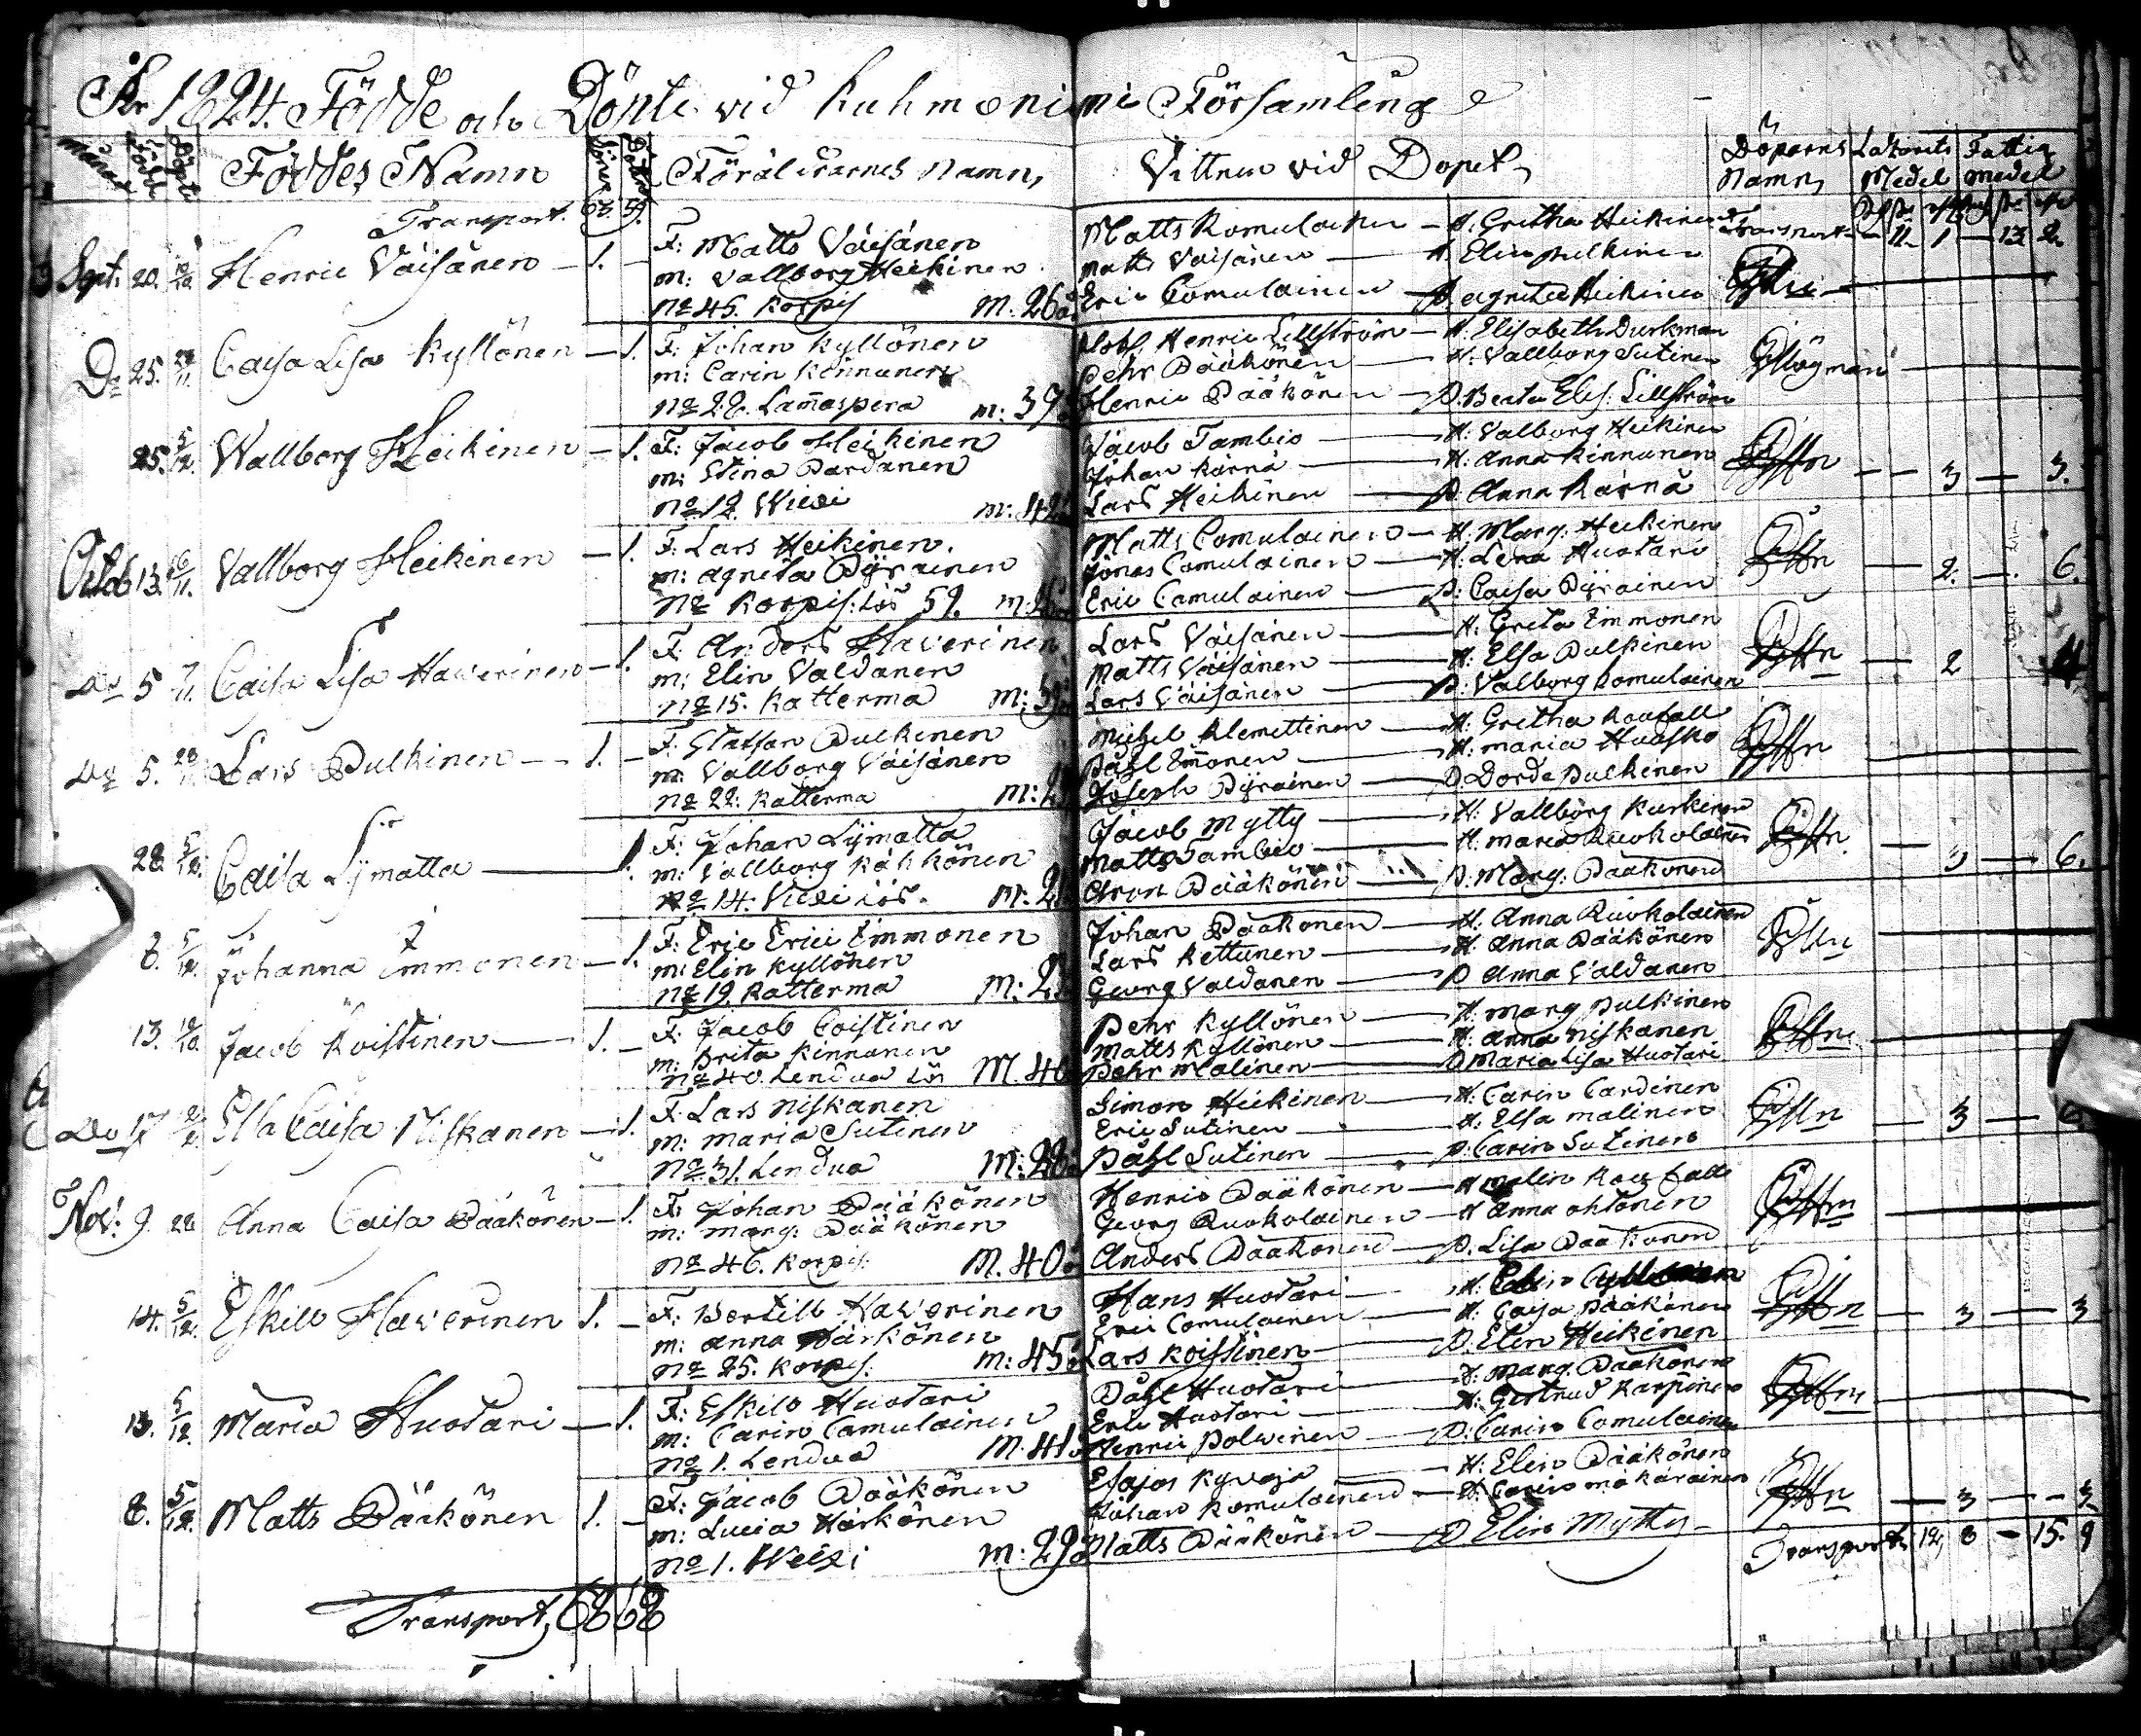 År 1824. Födde och Döpte vid Kuhmoniemi Församling
Månad Födde Döpte Föddes Namn Söner Döttrar Föräldrarnes Namn, Vittnen vid Dopet, Döparens Namn, Lazarets Medel Fattig medel
Transport. 63. 59. Transport 11 1 — 13 2.
Sept. 20. Henric Väisänen — 1. — F: Matts Väisänen Matts Komulainen — H. Gretha Heikinen
m: Vallborg Heikinen Matts Väisänen — H. Elin Pulkinen
No 45. Korpij m: 26 Eric Comulainen — P. Agneta Heikinen
Do 25. Caisa Lisa Kyllönen — 1. F: Johan Kyllönen Henric Lillström — H. Elisabeth Durkman
m: Carin Kinnunen Pehr Pääkönen — H. Vallborg Sutinen
No 22. Lam̄aspera m: 39 Henric Pääkönen — P. Beata Elis. Lillström
25. 5/12. Wallborg Heikinen — 1. F: Jacob Heikinen Jacob Tambio — H: Valborg Heikinen
m: Stina Pardanen Johan Kärnä — H: Anna Kinnunen — 3 — 3.
No 12. Wiexi m: 42 Lars Heikinen — P. Anna Kärnä
Octob 13. Vallborg Heikinen — 1. F: Lars Heikinen. Matts Comulainen — H. Marg. Heikinen
m: Agneta Pyrainen Jonas Comulainen — H. Lena Huotari — 2. — 6.
No Korpij: lös 59. Eric Comulainen — P: Caisa Pyrainen
Do 5 7/11. Caisa Lisa Haverinen — 1. F: Anders Haverinen Lars Väisänen — H. Greta Immonen
m: Elin Valdanen Matts Väisänen — H: Elsa Pulkinen — 2 4
No 15. Katterma Lars Väisänen — P. Valborg Komulainen
Do 5. Lars Pulkinen — 1. — F: Staffan Pulkinen Michel Klemettinen — H. Gretha Kaufall
m: Vallborg Väisänen Påhl Im̄onen — H: Maria Huosko
No 22: Katterma Joseph Pyrainen — P. Dorde Pulkinen
28. 5/12. Caisa Lÿmatta — 1. F: Johan Lÿmatta Jacob Mytty — H. Vallborg Kurkinen
m: Vallborg Kähkönen Matts Tambio — H. Maria Ruokolainen — 3 — 6.
No 14. Viexi lös. Aron Pääkönen — P. Marg: Pääkönen
8. 5/12. Johanna Immonen — 1. F: Eric Erici Immonen Johan Pääkönen — H. Anna Ruokolainen
m: Elin Kyllönen Lars Kettunen — H. Anna Pääkönen
No 19. Katterma Georg Valdanen — P. Anna Valdanen
13. Jacob Koistinen — 1. — F: Jacob Coistinen Pehr Kyllönen — H. Marg Pulkinen
m: Brita Kinnunen Matts Kyllönen — H: Anna Niskanen
No 40. Lendua lös M. 40 Pehr Malinen — P. Maria Lisa Huotari
Do 17 Elsa Caisa Niskanen — 1. F: Lars Niskanen Simon Heikinen — H: Carin Cardinen
m: Maria Sutinen Eric Sutinen — H: Elsa Malinen — 3 —
No 31. Lendua M: 28 Påhl Sutinen — P. Carin Sutinen
Nov: 9. 28 Anna Caisa Pääkönen — 1. F: Johan Pääkönen Henric Pääkönen — H Malin
m: Marg: Pääkönen Georg Ruokolainen — H Anna Ohtonen
No 46. Korpij: M. 40 Anders Pääkönen — P. Lisa Pääkönen
14. 5/12. Eskill Haverinen 1. — F: Bertill Haverinen Hans Huotari — H. Elin
m: Anna Härkönen Eric Comulainen — H. Caisa Pääkönen — 3 — 3
No 25. Korpij. m: 45 Lars Koistinen — P. Elin Heikinen
13. 5/12. Maria Huotari — 1. F: Eskill Huotari Påhl Huotari — H. Marg. Pääkönen
m: Carin Comulainen Eric Huotari — H. Gertrud Karpinen
No 1. Lendua M. 41 Henric Polvinen — P: Carin Comulainen
8. 5/12. Matts Pääkönen 1. — F: Jacob Pääkönen Esajas — H: Elin Pääkönen
m: Lucia Härkönen Johan Komulainen — H. Carin Mäkäräinen — 3 — 3.
No 1. Wiexi m: 29 Matts Pääkönen — P Elin Mytty —
Transport, 68 68 Transport 12, 8 — 15. 9